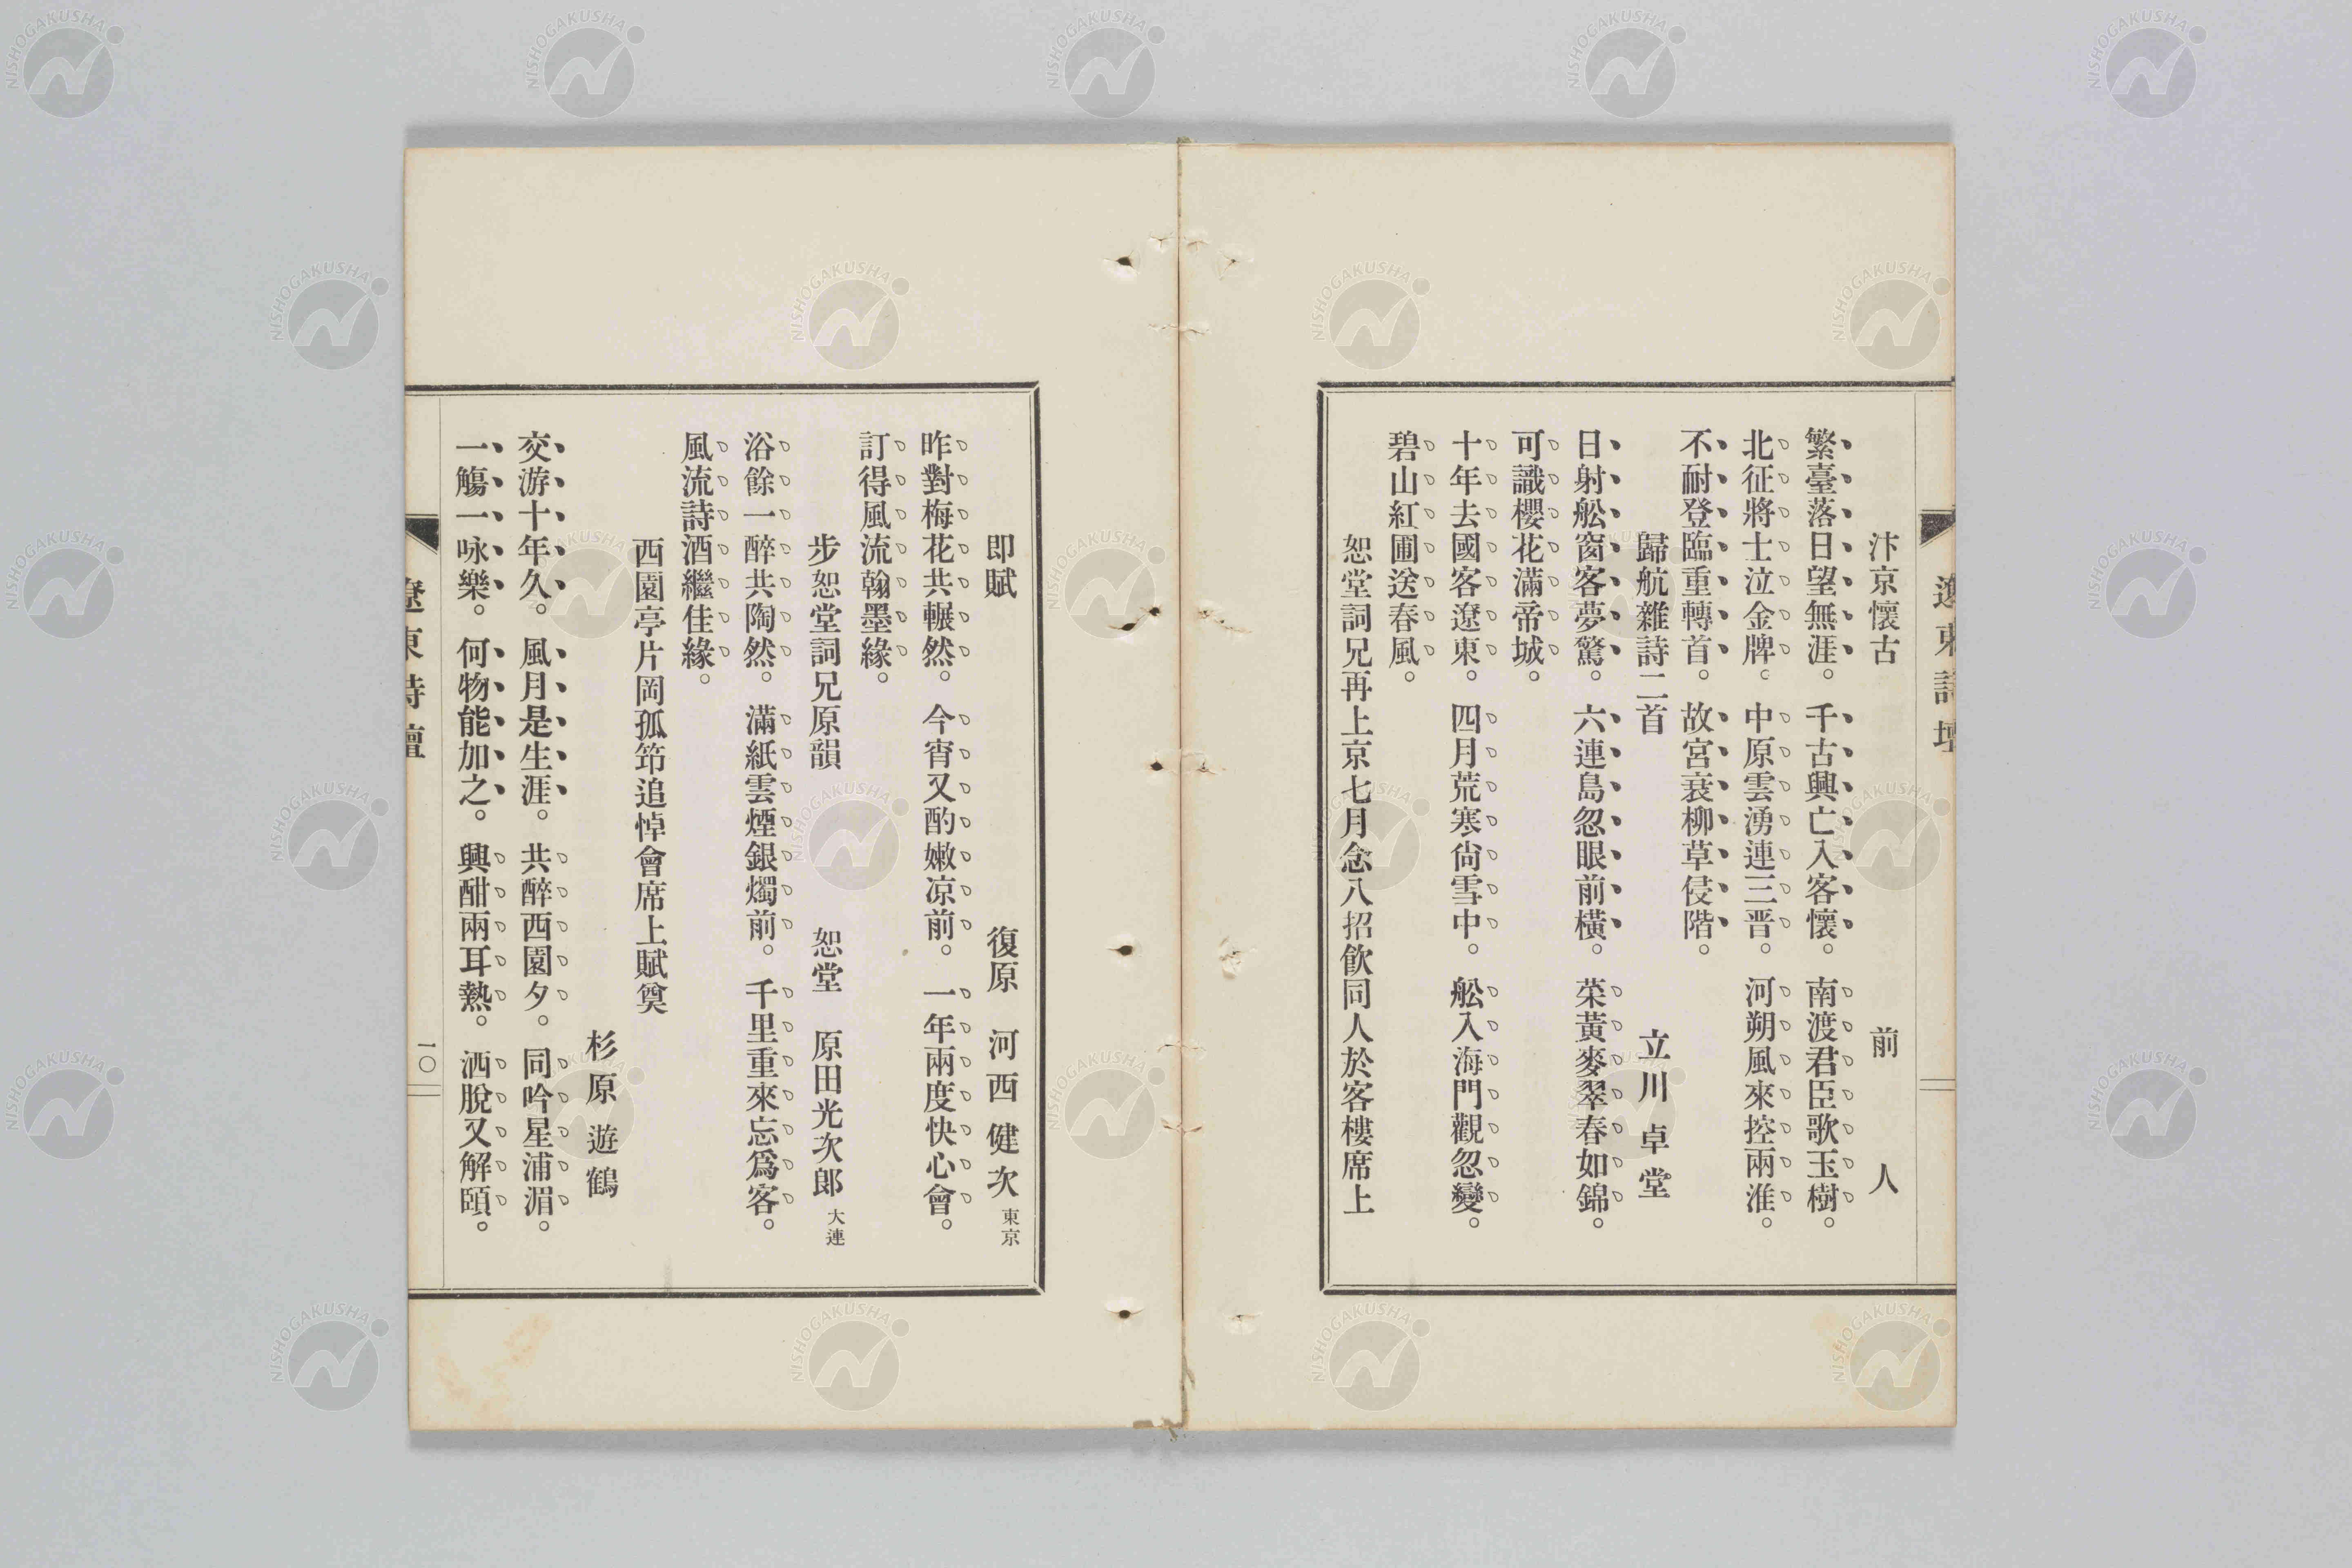 遼東詩壇
汴京懷古　前人
繁臺落日望無涯。千古興亡入客懷。南渡君臣歌玉樹。
北征將士泣金牌。中原雲湧連三晋。河朔風來控兩淮。
不耐登臨重轉首。故宮衰柳草侵階。
歸航雜詩二首　立川卓堂
日射舩窗客夢驚。六連島忽眼前橫。菜黃麥翠春如錦。
可識櫻花滿帝城。
十年去國客遼東。四月荒寒尙雪中。舩入海門觀忽變。
碧山紅圃送春風。
恕堂詞兄再上京七月念八招飮同人於客樓席上
即賦　復原　河西健次　東京
昨對梅花共輾然。今宵又酌嫩凉前。一年兩度快心會。
訂得風流翰墨緣。
步恕堂詞兄原韻　恕堂　原田光次郎　大連
浴餘一醉共陶然。滿紙雲煙銀燭前。千里重來忘爲客。
風流詩酒繼佳緣。
西園亭片岡孤筇追悼會席上賦奠
杉原遊鶴
交游十年久。風月是生涯。共醉西園夕。同吟星浦湄。
一觴一咏樂。何物能加之。興酣兩耳熱。洒脫又解頤。
遼東詩壇
一〇
NISHOGAKUSHA